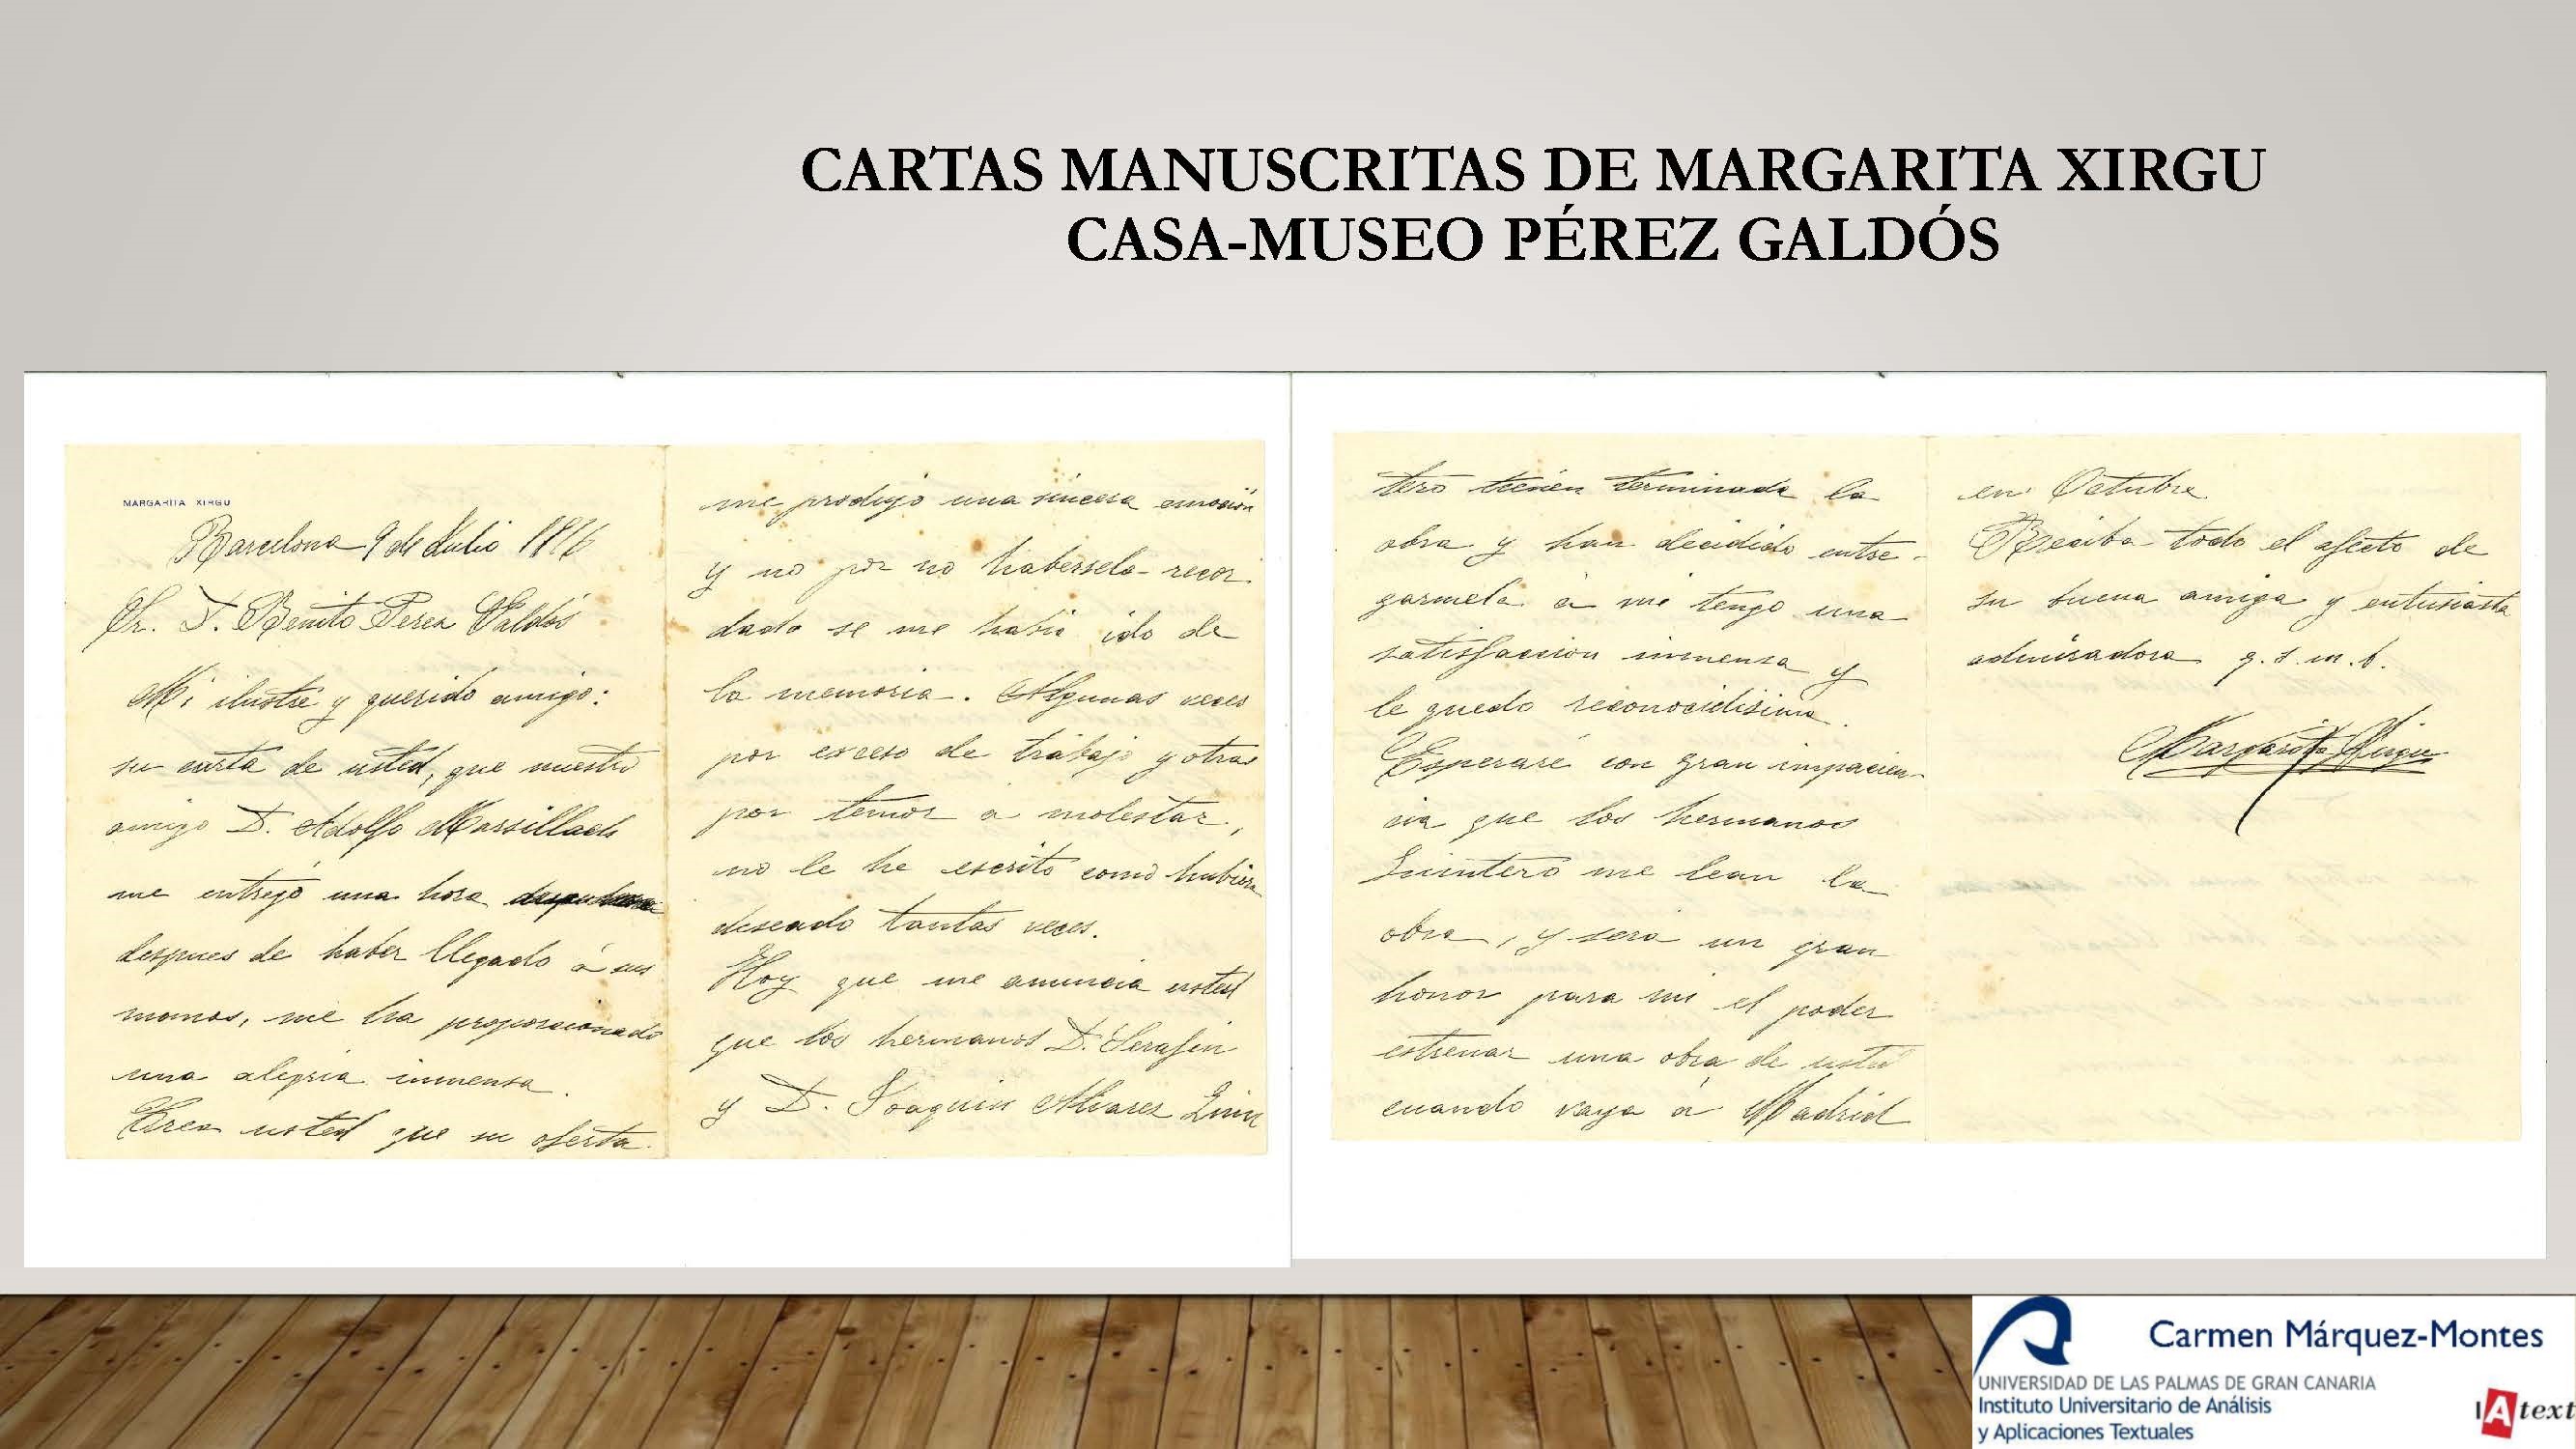 CARTAS MANUSCRITAS DE MARGARITA XIRGU
CASA-MUSEO PÉREZ GALDÓS
MARGARITA XIRGU
Barcelona 9 de Julio 1916
Sr. D. Benito Perez Galdós
Mi ilustre y querido amigo:
su carta de usted, que nuestro
amigo D. Adolfo Marsillach
me entregó una hora
despues de haber llegado á sus
manos, me ha proporcionado
una alegria inmensa.
Crea usted que su oferta
me produjo una sincera emoción
y no por no habersela recor
dado se me habia ido de
la memoria. Algunas veces
por exceso de trabajo y otras
por temor a molestar,
no le he escrito como hubiera
deseado tantas veces.
Hoy que me anuncia usted
que los hermanos D. Serafin
y D. Joaquin Alvarez Quin
tero tienen terminada la
obra y han decidido entre-
garmela á mi tengo una
satisfaccion inmensa y
le quedo reconocidisima.
Esperaré con gran impacien-
cia que los hermanos
Quintero me lean la
obra, y sera un gran
honor para mi el poder
estrenar una obra de usted
cuando vaya á Madrid
en Octubre.
Reciba todo el afecto de
su buena amiga y entusiasta
admiradora q. s. m. b.
Margarita Xirgu
Carmen Márquez-Montes
UNIVERSIDAD DE LAS PALMAS DE GRAN CANARIA
Instituto Universitario de Análisis
y Aplicaciones Textuales
IAtext